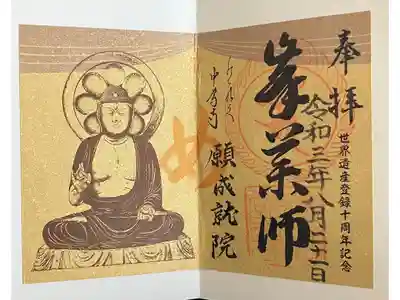 奉拝
世界遺産登録十周年記念
令和三年八月二十二日
峯薬師
中尊寺
願成就院